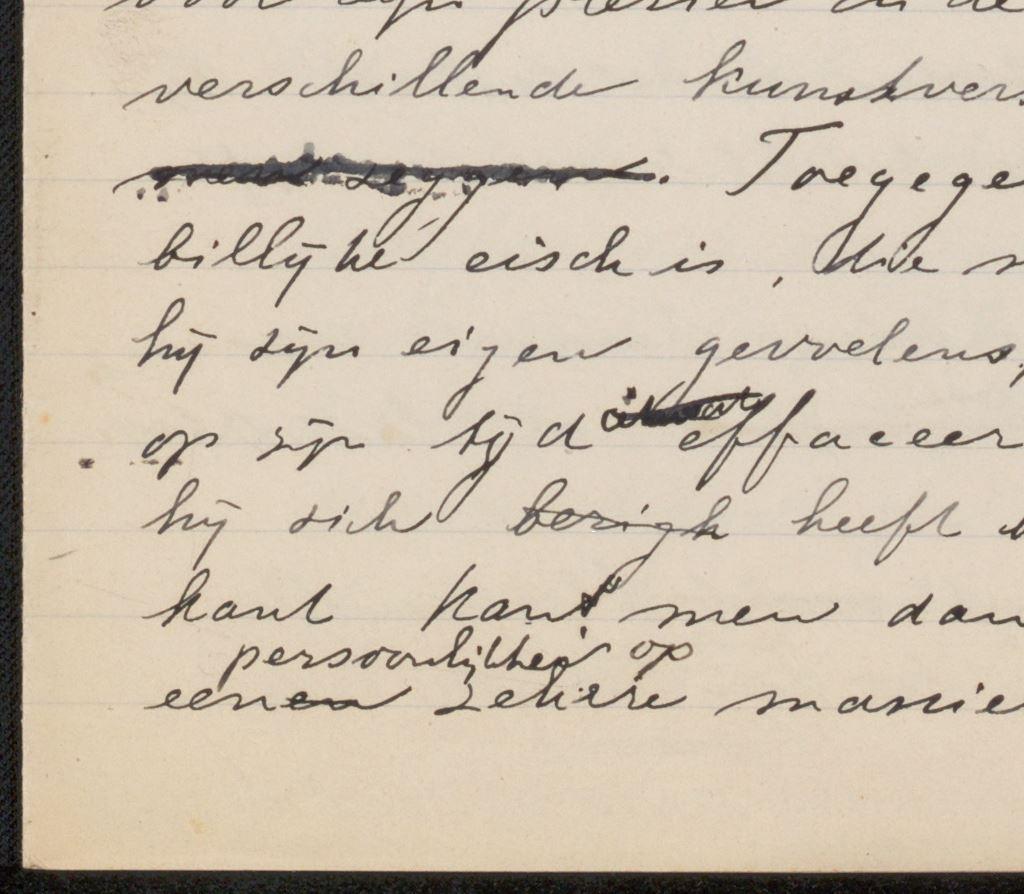 verschillende kunstver
zeggen. Toegege
billijke eisch is, die
hij zijn eigen gevoelens,
op zijn tijd effaceer
hij zich bezigh heeft
kant kan men dan
persoonlijkheid op
eenen zekere manie